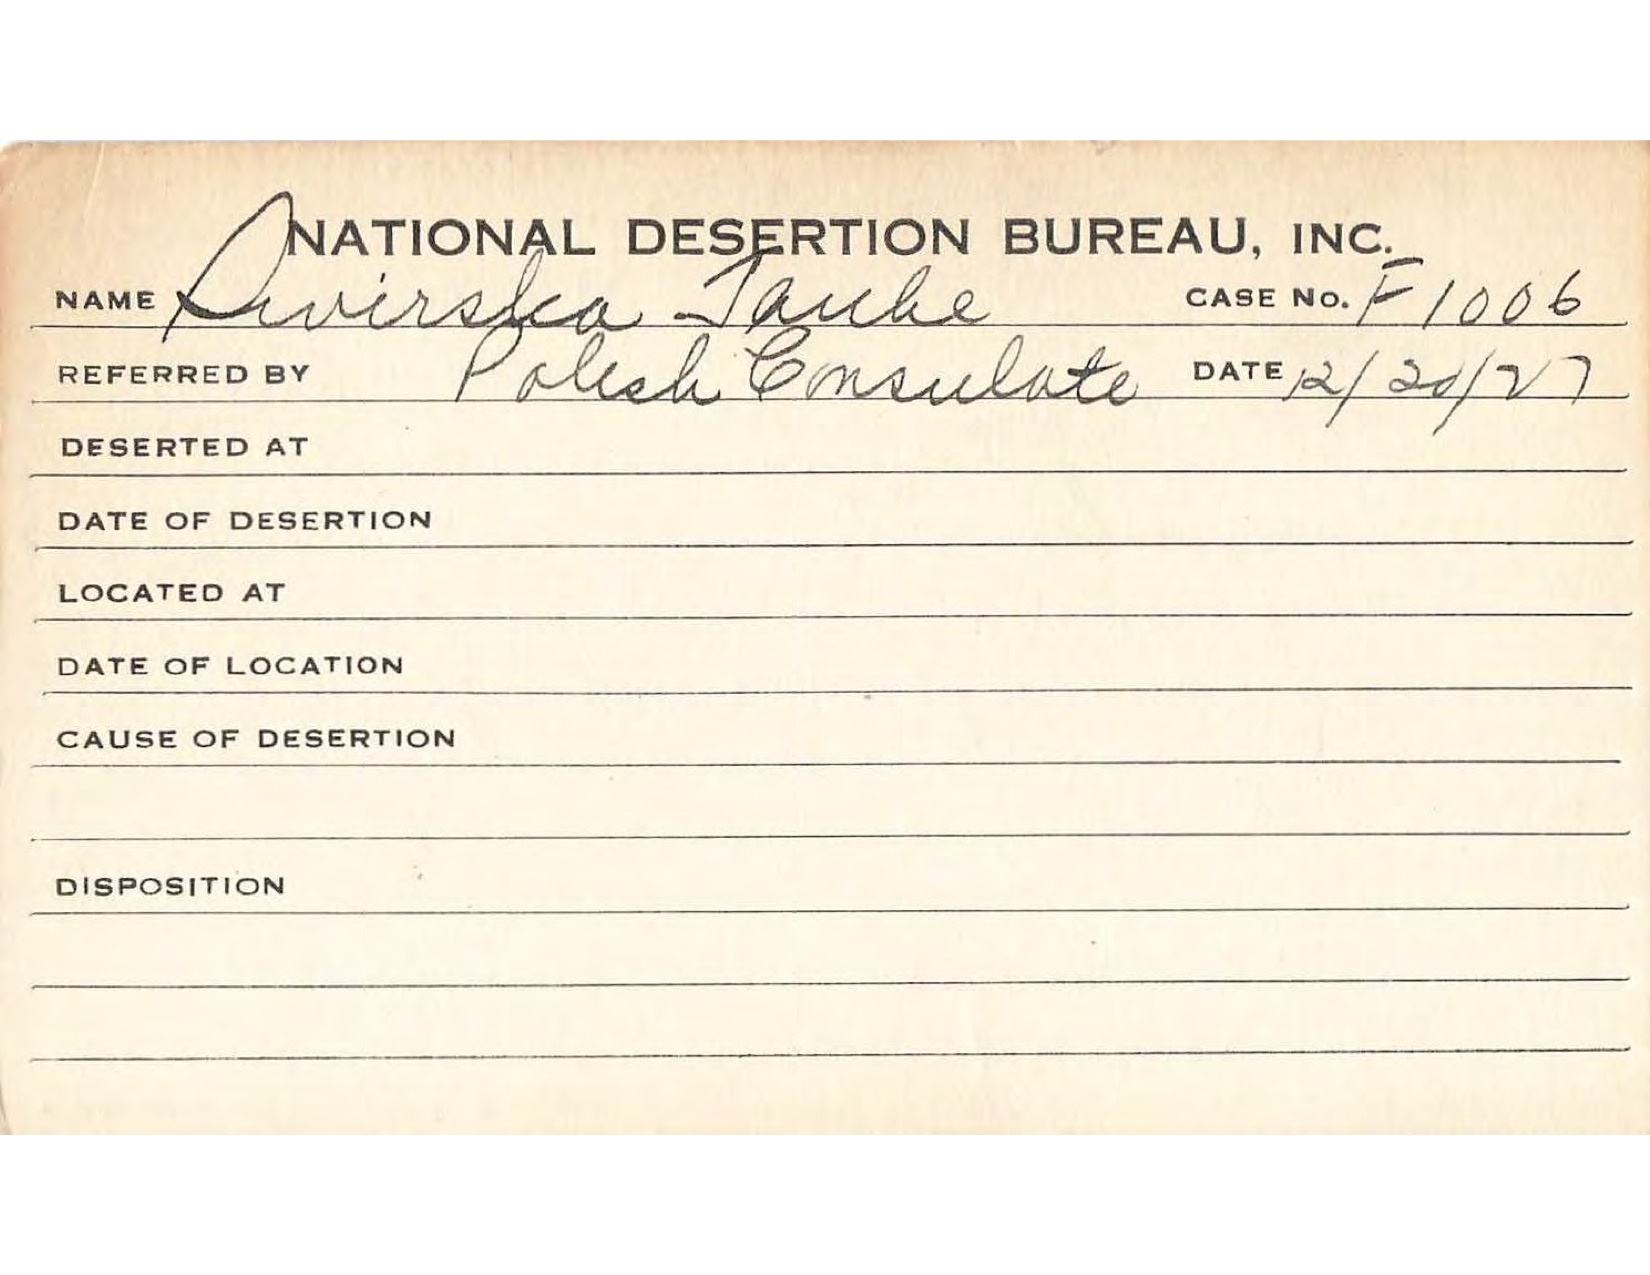 NATIONAL DESERTION BUREAU, INC.
NAME Swirska Taube CASE NO. F1006
REFERRED BY Polish Consulate DATE 12/20/27
DESERTED AT
DATE OF DESERTION
LOCATED AT
DATE OF LOCATION
CAUSE OF DESERTION
DISPOSITION